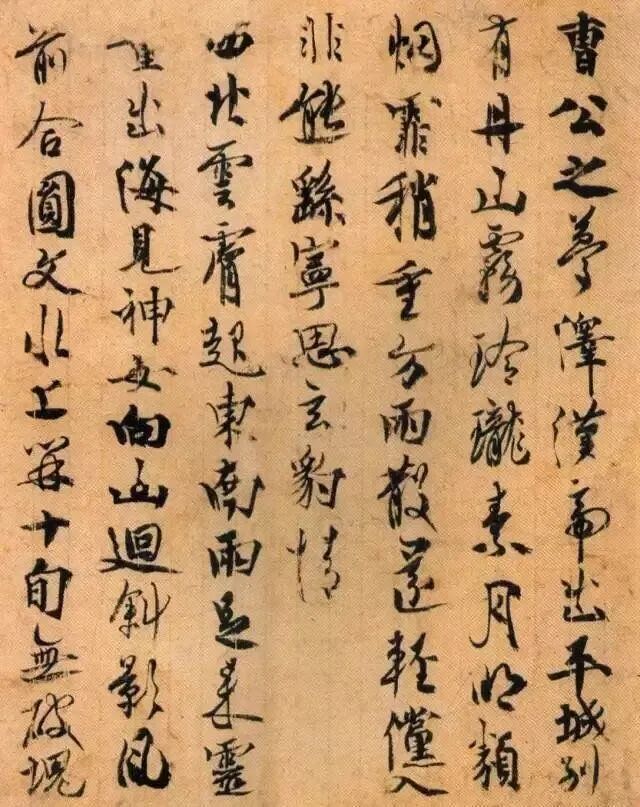 曹公之夢澤漢帝出平城別
有丹山霧玲瓏素月明類
烟霏稍重方雨散還輕儻入
非熊繇寧思玄豹情
西北雲膚起東南雨足來靈
出海見神女向山迴斜影風
前合圓文水上開十旬無破塊